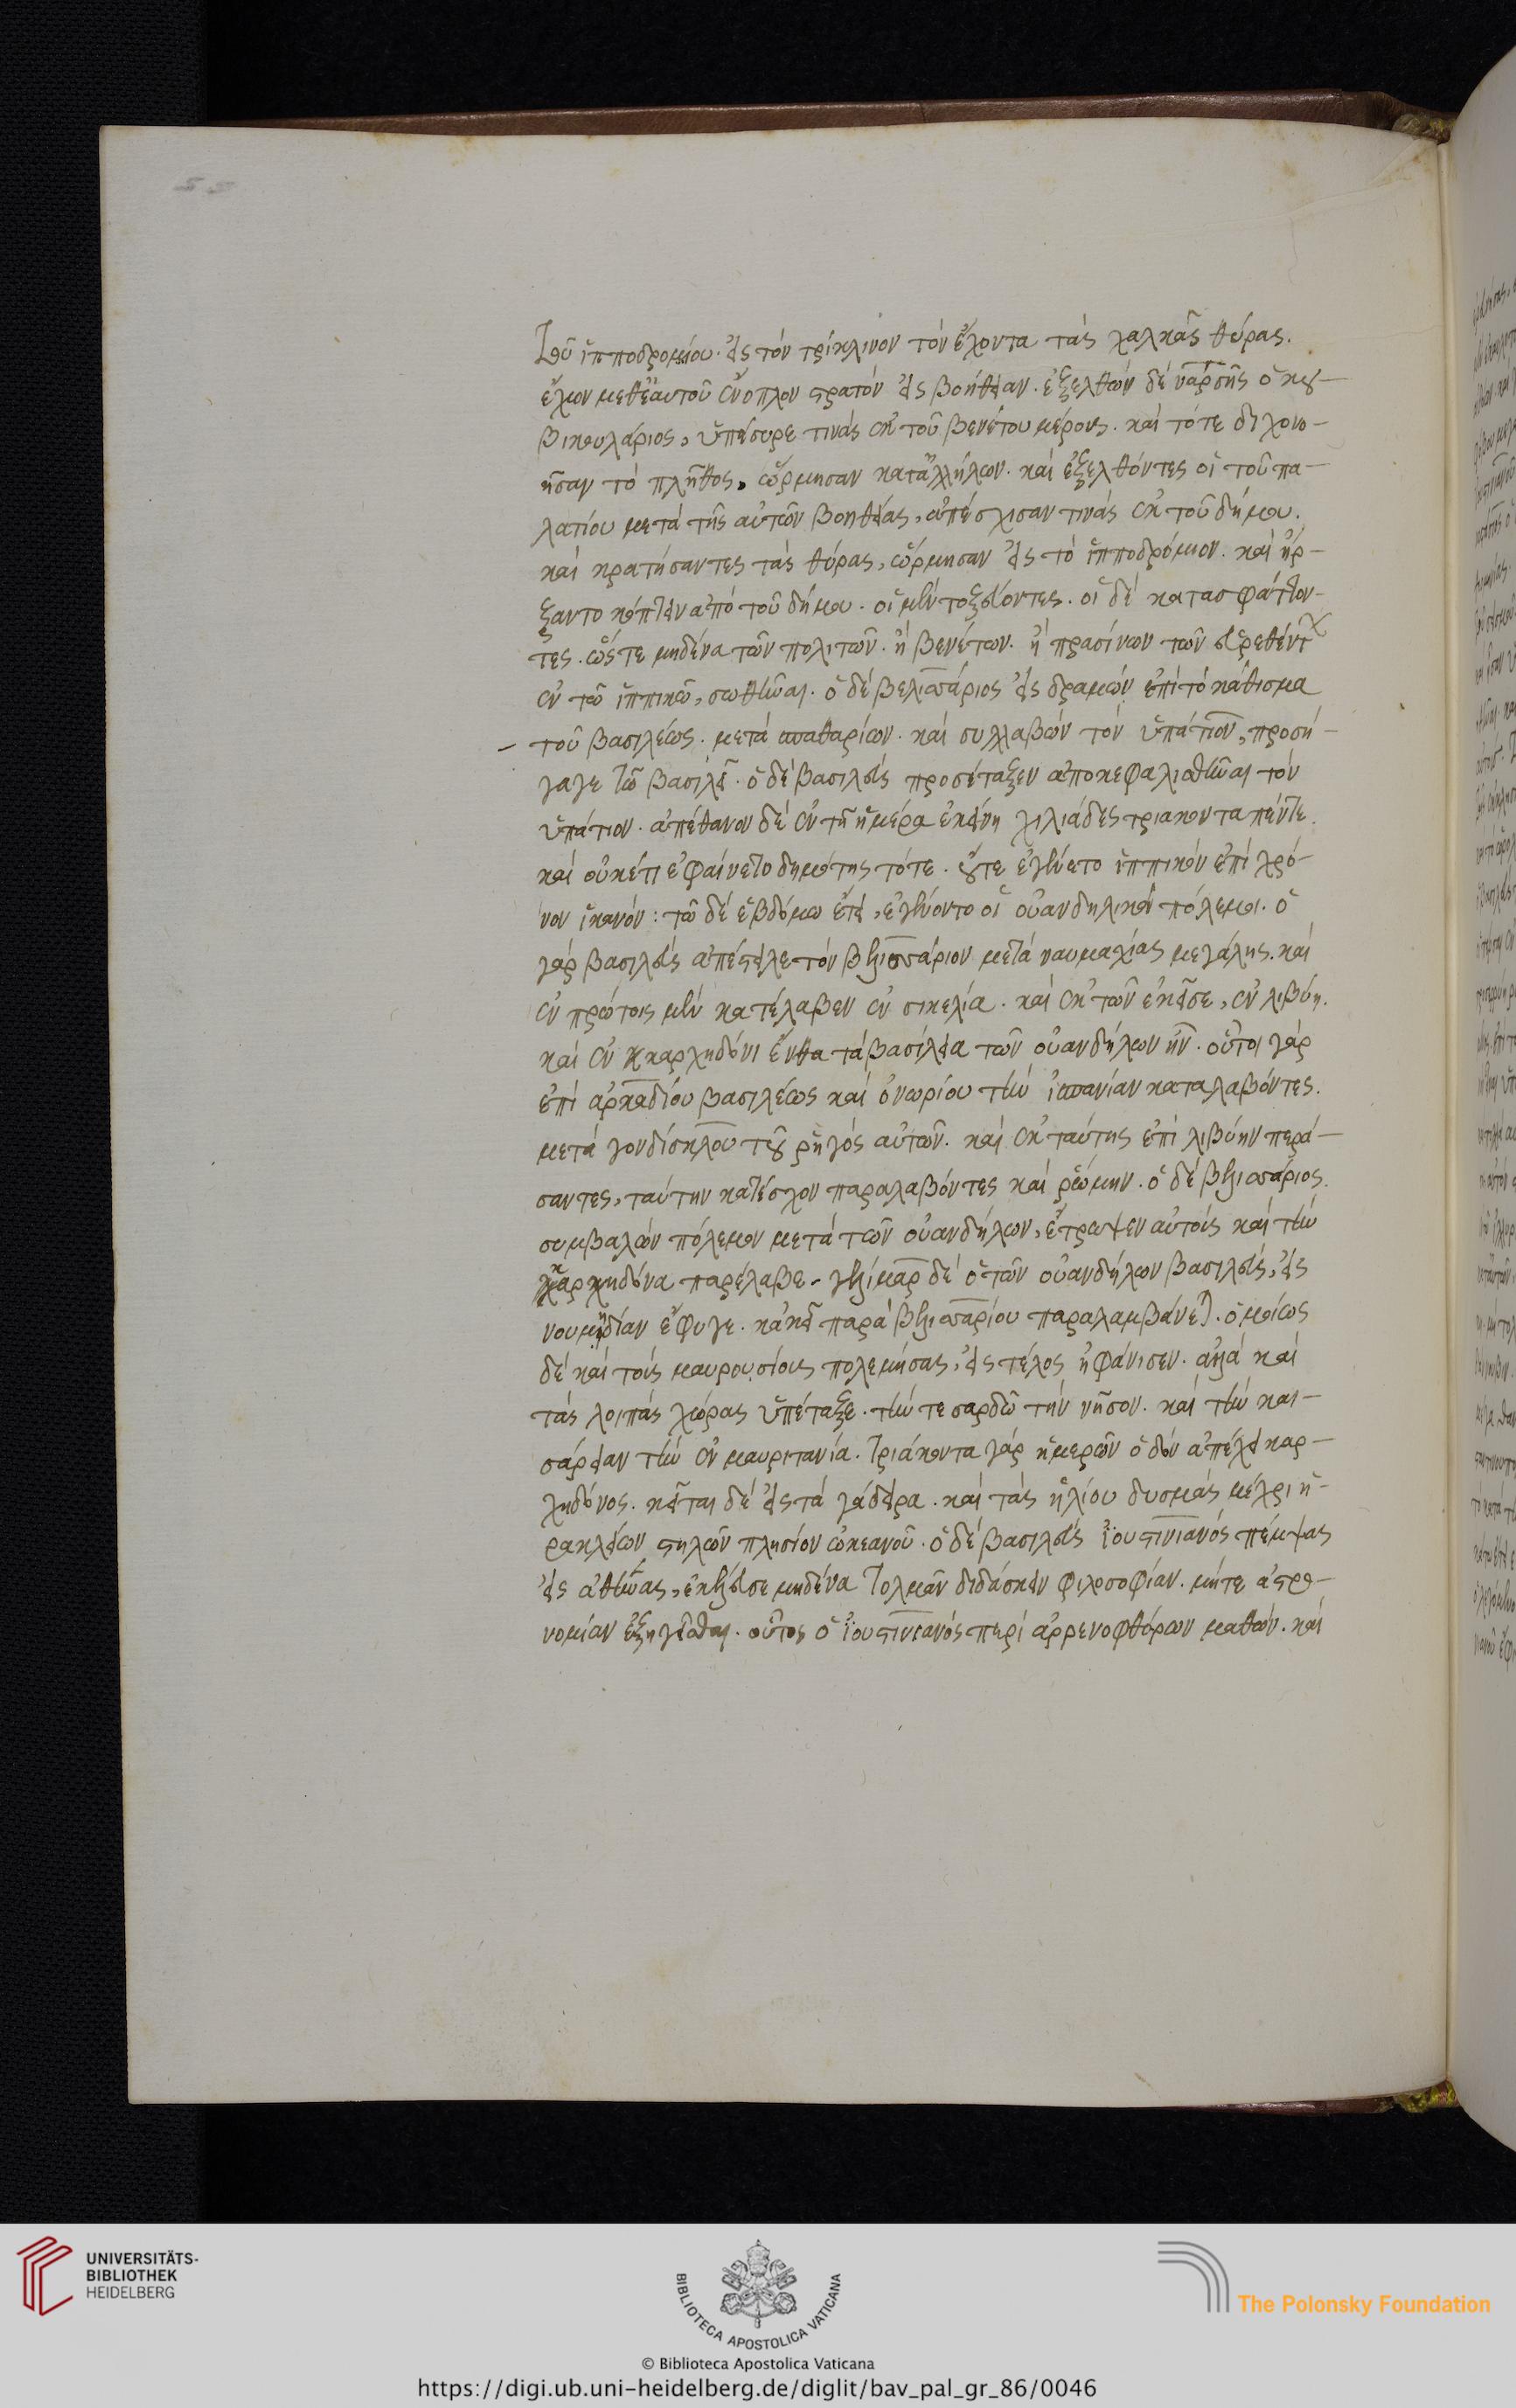 τοῦ ἱπποδρομίου. εἰς τὸν τρίκλινον τὸν ἔχοντα τὰς χαλκᾶς θύρας.
ἔχων μεθἑαυτοῦ ἔνοπλον στρατὸν εἰς βοήθειαν. ἐξελθὼν δὲ ναρσῆς ὁ κου-
βικουλάριος, ὑπέσυρε τινὰς ἐκ τοῦ βενέτου μέρους. καὶ τότε διχονο-
ῆσαν τὸ πλῆθος, ὥρμησαν κατἀλλήλων. καὶ ἐξελθόντες οἱ τοῦ πα-
λατίου μετὰ τῆς αὐτῶν βοηθείας, ἀπέσχισαν τινὰς ἐκ τοῦ δήμου.
καὶ κρατήσαντες τὰς θύρας, ὥρμησαν εἰς τὸ ἱπποδρόμιον. καὶ ἤρ-
ξαντο κόπτειν ἀπὸ τοῦ δήμου. οἱ μὲν τοξεύοντες. οἱ δὲ κατασφάττον-
τες. ὥςτε μηδένα τῶν πολιτῶν. ἢ βενέτων. ἢ πρασίνων τῶν εὑρεθέντων
ἐν τῶ ἱππικῶ, σωθῆναι. ὁ δὲ βελισσάριος εἰς δραμὼν ἐπὶ τὸ κάθισμα
τοῦ βασιλέως. μετὰ σπαθαρίων. καὶ συλλαβὼν τὸν ὑπάτιον, προσή-
γαγε τῶ βασιλεῖ. ὁ δὲ βασιλεὺς προσέταξεν ἀποκεφαλισθῆναι τὸν
ὑπάτιον. ἀπέθανον δὲ ἐν τῆ ἡμέρα ἐκείνη χιλιάδες τριακοντα πέντε.
καὶ οὐκέτι ἐφαίνετο δημότης τότε. οὔτε ἐγένετο ἱππικὸν ἐπὶ χρό-
νον ἱκανόν: τῶ δὲ ἑβδόμω ἔτει, ἐγένοντο οἱ οὐανδηλικοὶ πόλεμοι. ὁ
γὰρ βασιλεὺς ἀπέστειλε τὸν βελισσάριον μετὰ ναυμαχίας μεγάλης. καὶ
ἐν πρώτοις μὲν κατέλαβεν ἐν σικελία. καὶ ἐκ τῶν ἐκεῖσε, ἐν λιβύη.
καὶ ἐν καρχηδόνι ἔνθα τὰ βασίλεια τῶν οὐανδήλων ἦν. οὗτοι γὰρ
ἐπὶ ἀρκαδίου βασιλέως καὶ ὀνωρίου τὴν ἱσπανίαν καταλαβόντες.
μετὰ γονδίσκλου τοῦ ῥηγὸς αὐτῶν. καὶ ἐκ ταύτης ἐπὶ λιβύην περά-
σαντες, ταύτην κατέσχον παραλαβόντες καὶ ῥώμην. ὁ δὲ βελισσάριος.
συμβαλὼν πόλεμον μετὰ τῶν οὐανδήλων, ἔτρεψεν αὐτοὺς καὶ τὴν
καρχηδόνα παρέλαβε. γελίμαρ δὲ ὁ τῶν οὐανδήλων βασιλεὺς, εἰς
νουμηδίαν ἔφυγε. κἀκεῖ παρὰ βελισσαρίου παραλαμβάνεται. ὁμοίως
δὲ καὶ τοὺς μαυρουσίους πολεμήσας, εἰς τέλος ἠφάνισεν. ἀλλὰ καὶ
τὰς λοιπὰς χώρας ὑπέταξε. τήν τε σαρδῶ τὴν νῆσον. καὶ τὴν και-
σάρειαν τὴν ἐν μαυριτανία. τριάκοντα γὰρ ἡμερῶν ὁδὸν ἀπέχει καρ-
χηδόνος. κεῖται δὲ εἰς τὰ γάδειρα. καὶ τὰς ἡλίου δυσμὰς μέχρι ἡ-
ρακλείων στηλῶν πλησίον ὠκεανοῦ. ὁ δὲ βασιλεὺς ἰουστινιανὸς πέμψας
εἰς ἀθήνας, ἐκέλευσε μηδένα τολμᾶν διδάσκειν φιλοσοφίαν. μήτε ἀστρο-
νομίαν ἐξηγεῖσθαι. οὗτος ὁ ἰουστινιανὸς περὶ ἀρρενοφθόρων μαθὼν. καὶ
UNIVERSITÄTS-
BIBLIOTHEK
HEIDELBERG
BIBLIOTECA APOSTOLICA VATICANA
The Polonsky Foundation
© Biblioteca Apostolica Vaticana
https://digi.ub.uni-heidelberg.de/diglit/bav_pal_gr_86/0046